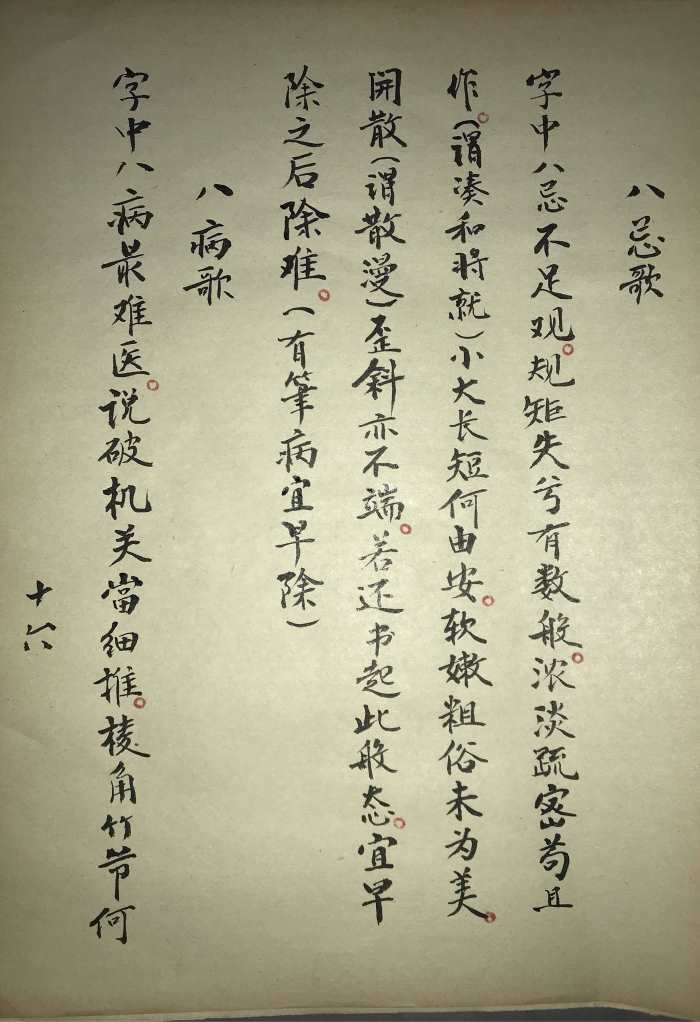 八忌歌
字中八忌不足观。规矩失兮有数般。浓淡疏密苟且
作。(谓凑和将就)小大长短何由安。软嫩粗俗未为美。
開散(谓散漫)歪斜亦不端。若还书起此般态。宜早
除之后除难。(有筆病宜早除)
八病歌
字中八病最难医。说破机关當细推。棱角竹节何
十六